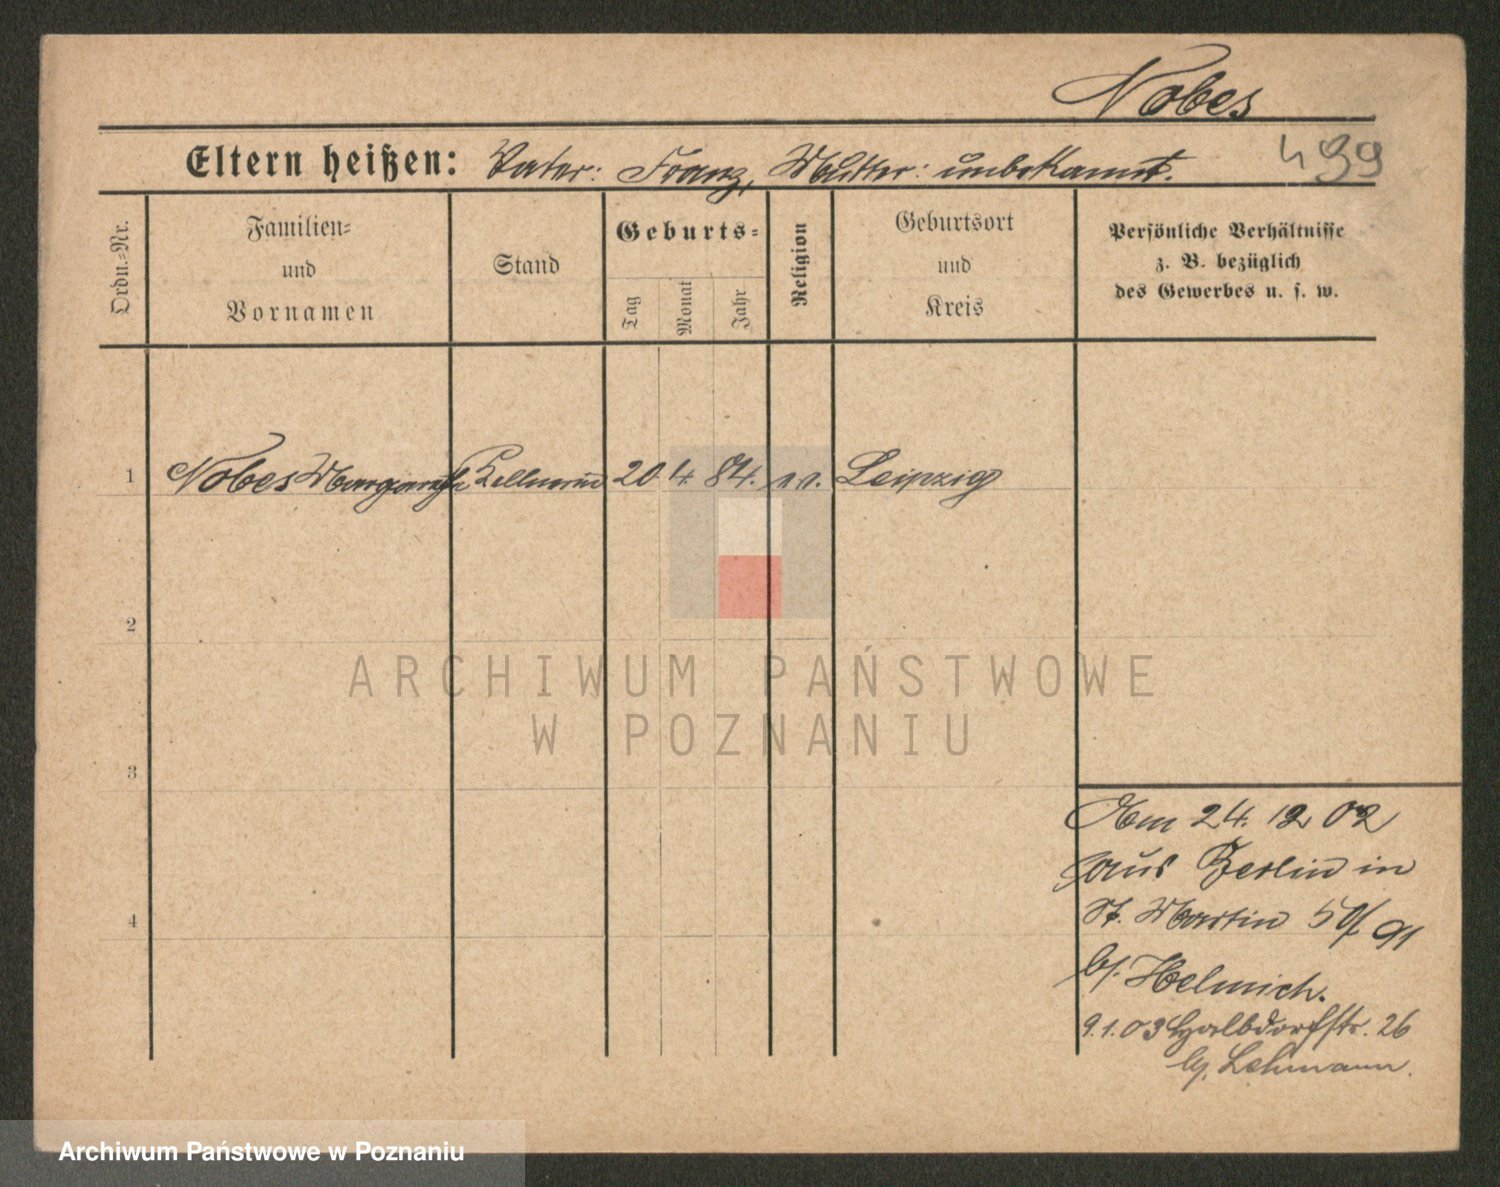 Nobes
Eltern heißen: Vater: Franz, Mutter: unbekannt.
499
Ordn.-Nr.
Familien-
und
Vornamen
Stand
Geburts-
Tag
Monat
Jahr
Religion
Geburtsort
und
Kreis
Persönliche Verhältnisse
z. B. bezüglich
des Gewerbes u. s. w.
1 Nobes Margarethe Kellnerin 20. 4. 84. Leipzig
2
3
4
ARCHIWUM PAŃSTWOWE
W POZNANIU
Am 24. 12 02
aus Berlin in
St. Martin 50/91
bj. Helmich.
9.1.03 Halbdorfstr. 26
bj. Lehmann.
Archiwum Państwowe w Poznaniu